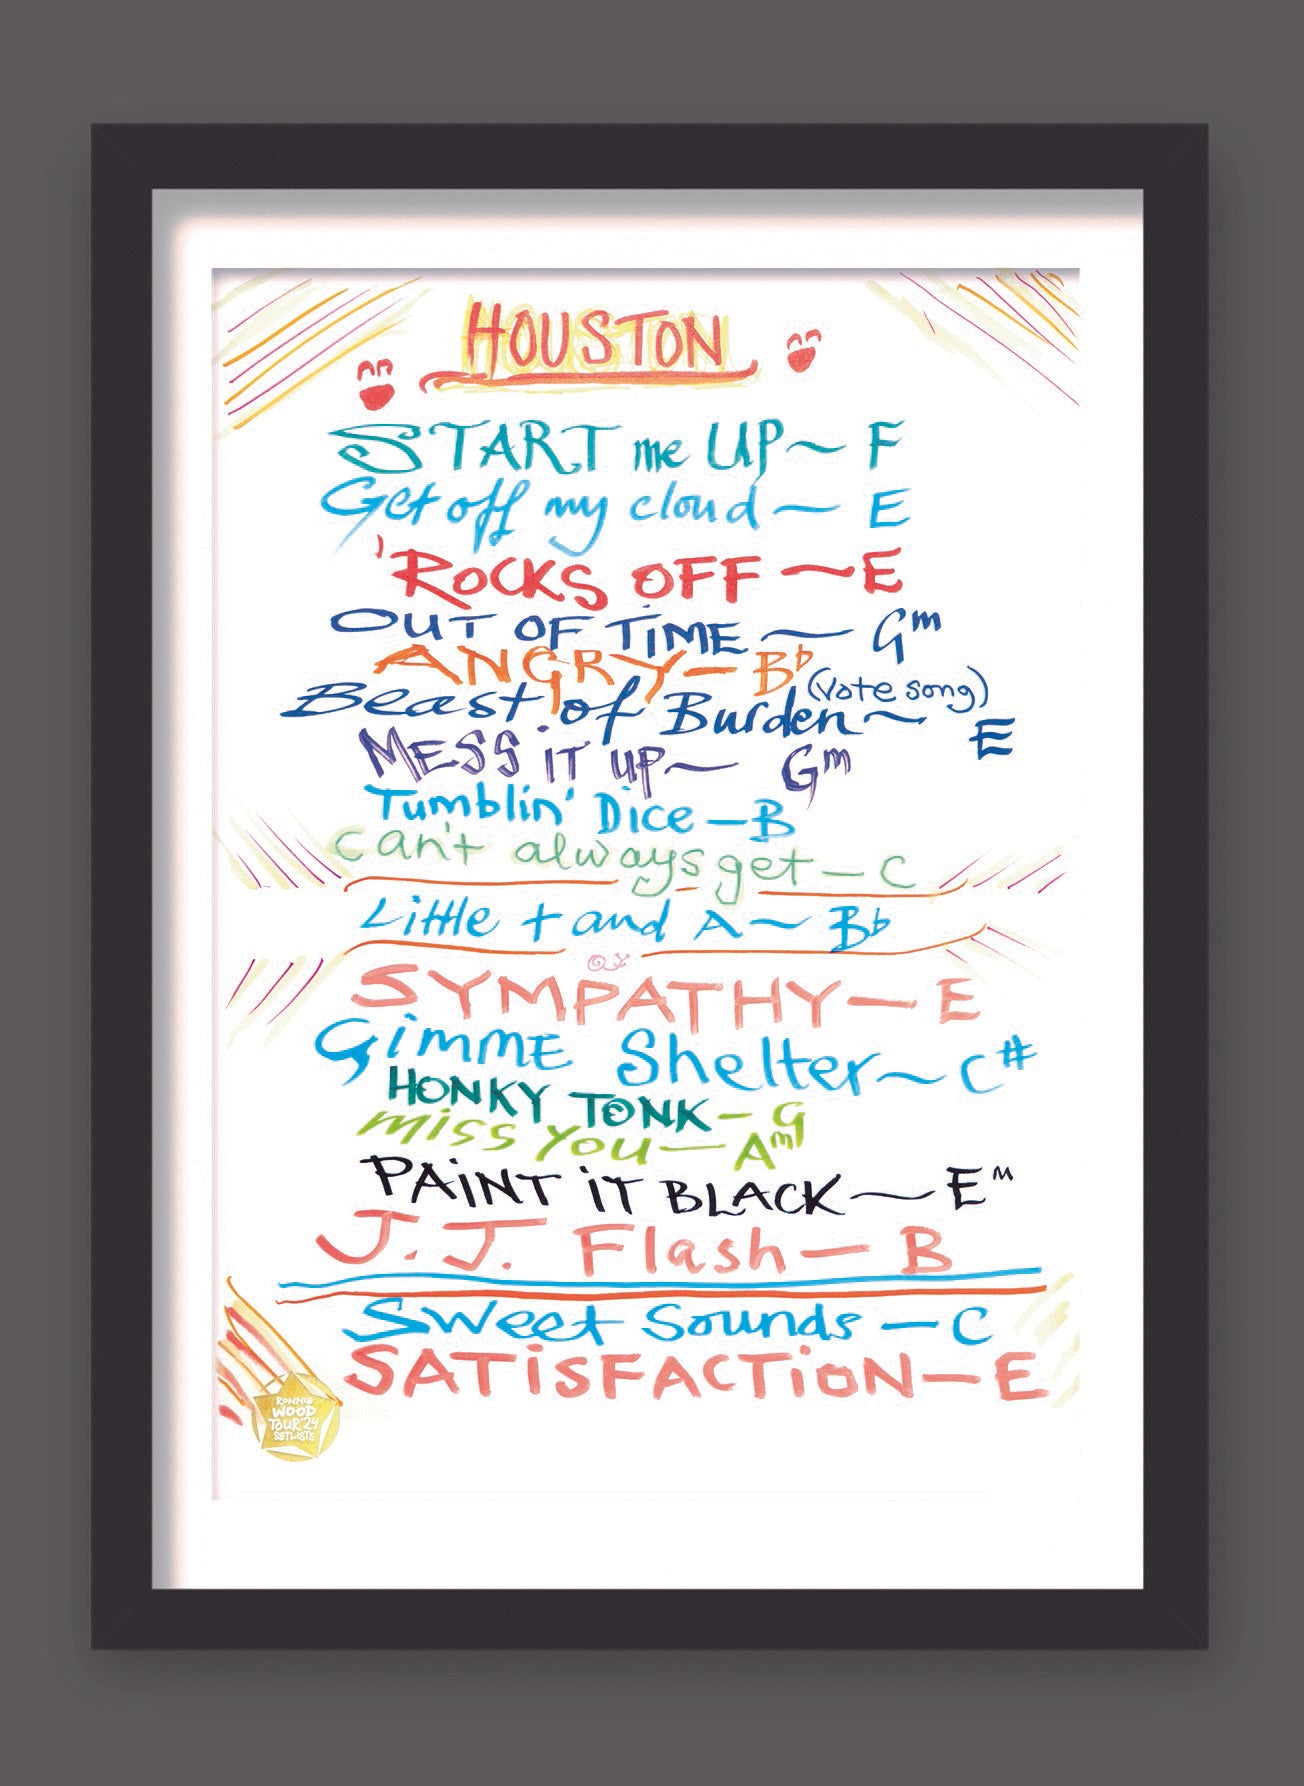 HOUSTON
START me UP ~ F
Get off my cloud ~ E
'ROCKS OFF ~ E
OUT OF TiME ~ Gm
ANGRY — B♭
(Vote song)
Beast of Burden ~ E
MESS iT UP ~ Gm
Tumblin' Dice — B
can't always get — C
Little t and A ~ B♭
SYMPATHY — E
GiMME Shelter ~ C#
HONKY TONK — G
miss you — Am
PAiNT iT BLACK ~ Em
J.J. Flash — B
Sweet Sounds — C
SATiSFACTiON — E
RONNIE
WOOD
TOUR '24
SETLISTS